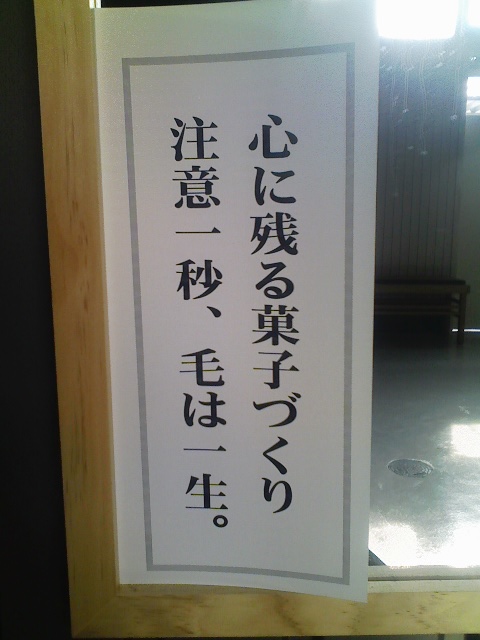 心に残る菓子づくり
注意一秒、毛は一生。